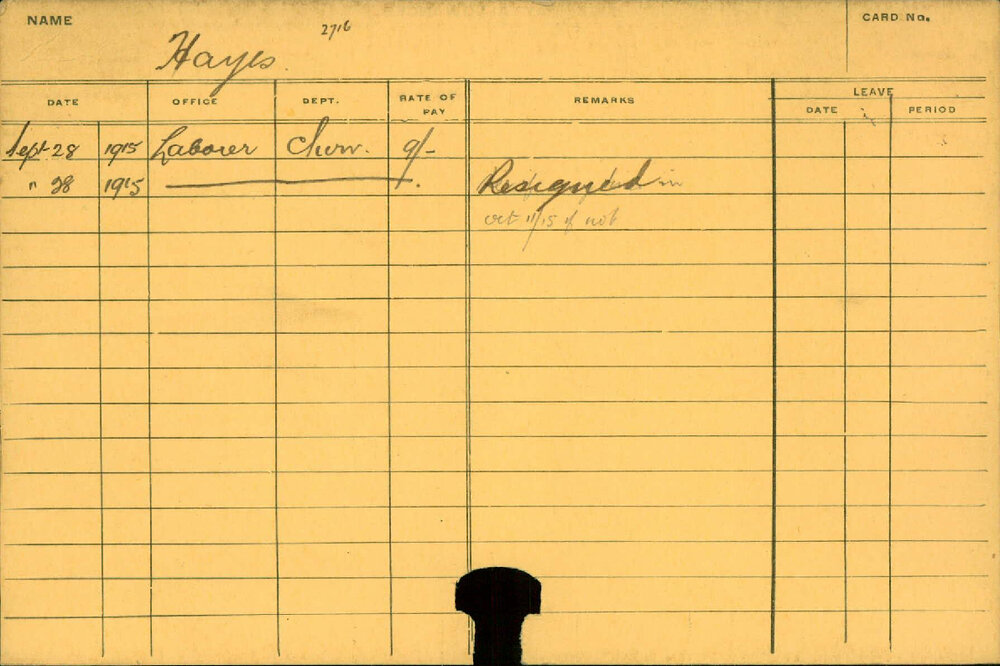 NAME
2716
CARD No.
Hayes.
DATE OFFICE DEPT. RATE OF PAY REMARKS LEAVE
DATE PERIOD
Sept 28 1915 Labourer 9/-
" 28 1915 Resigned
Oct 11/15 if not